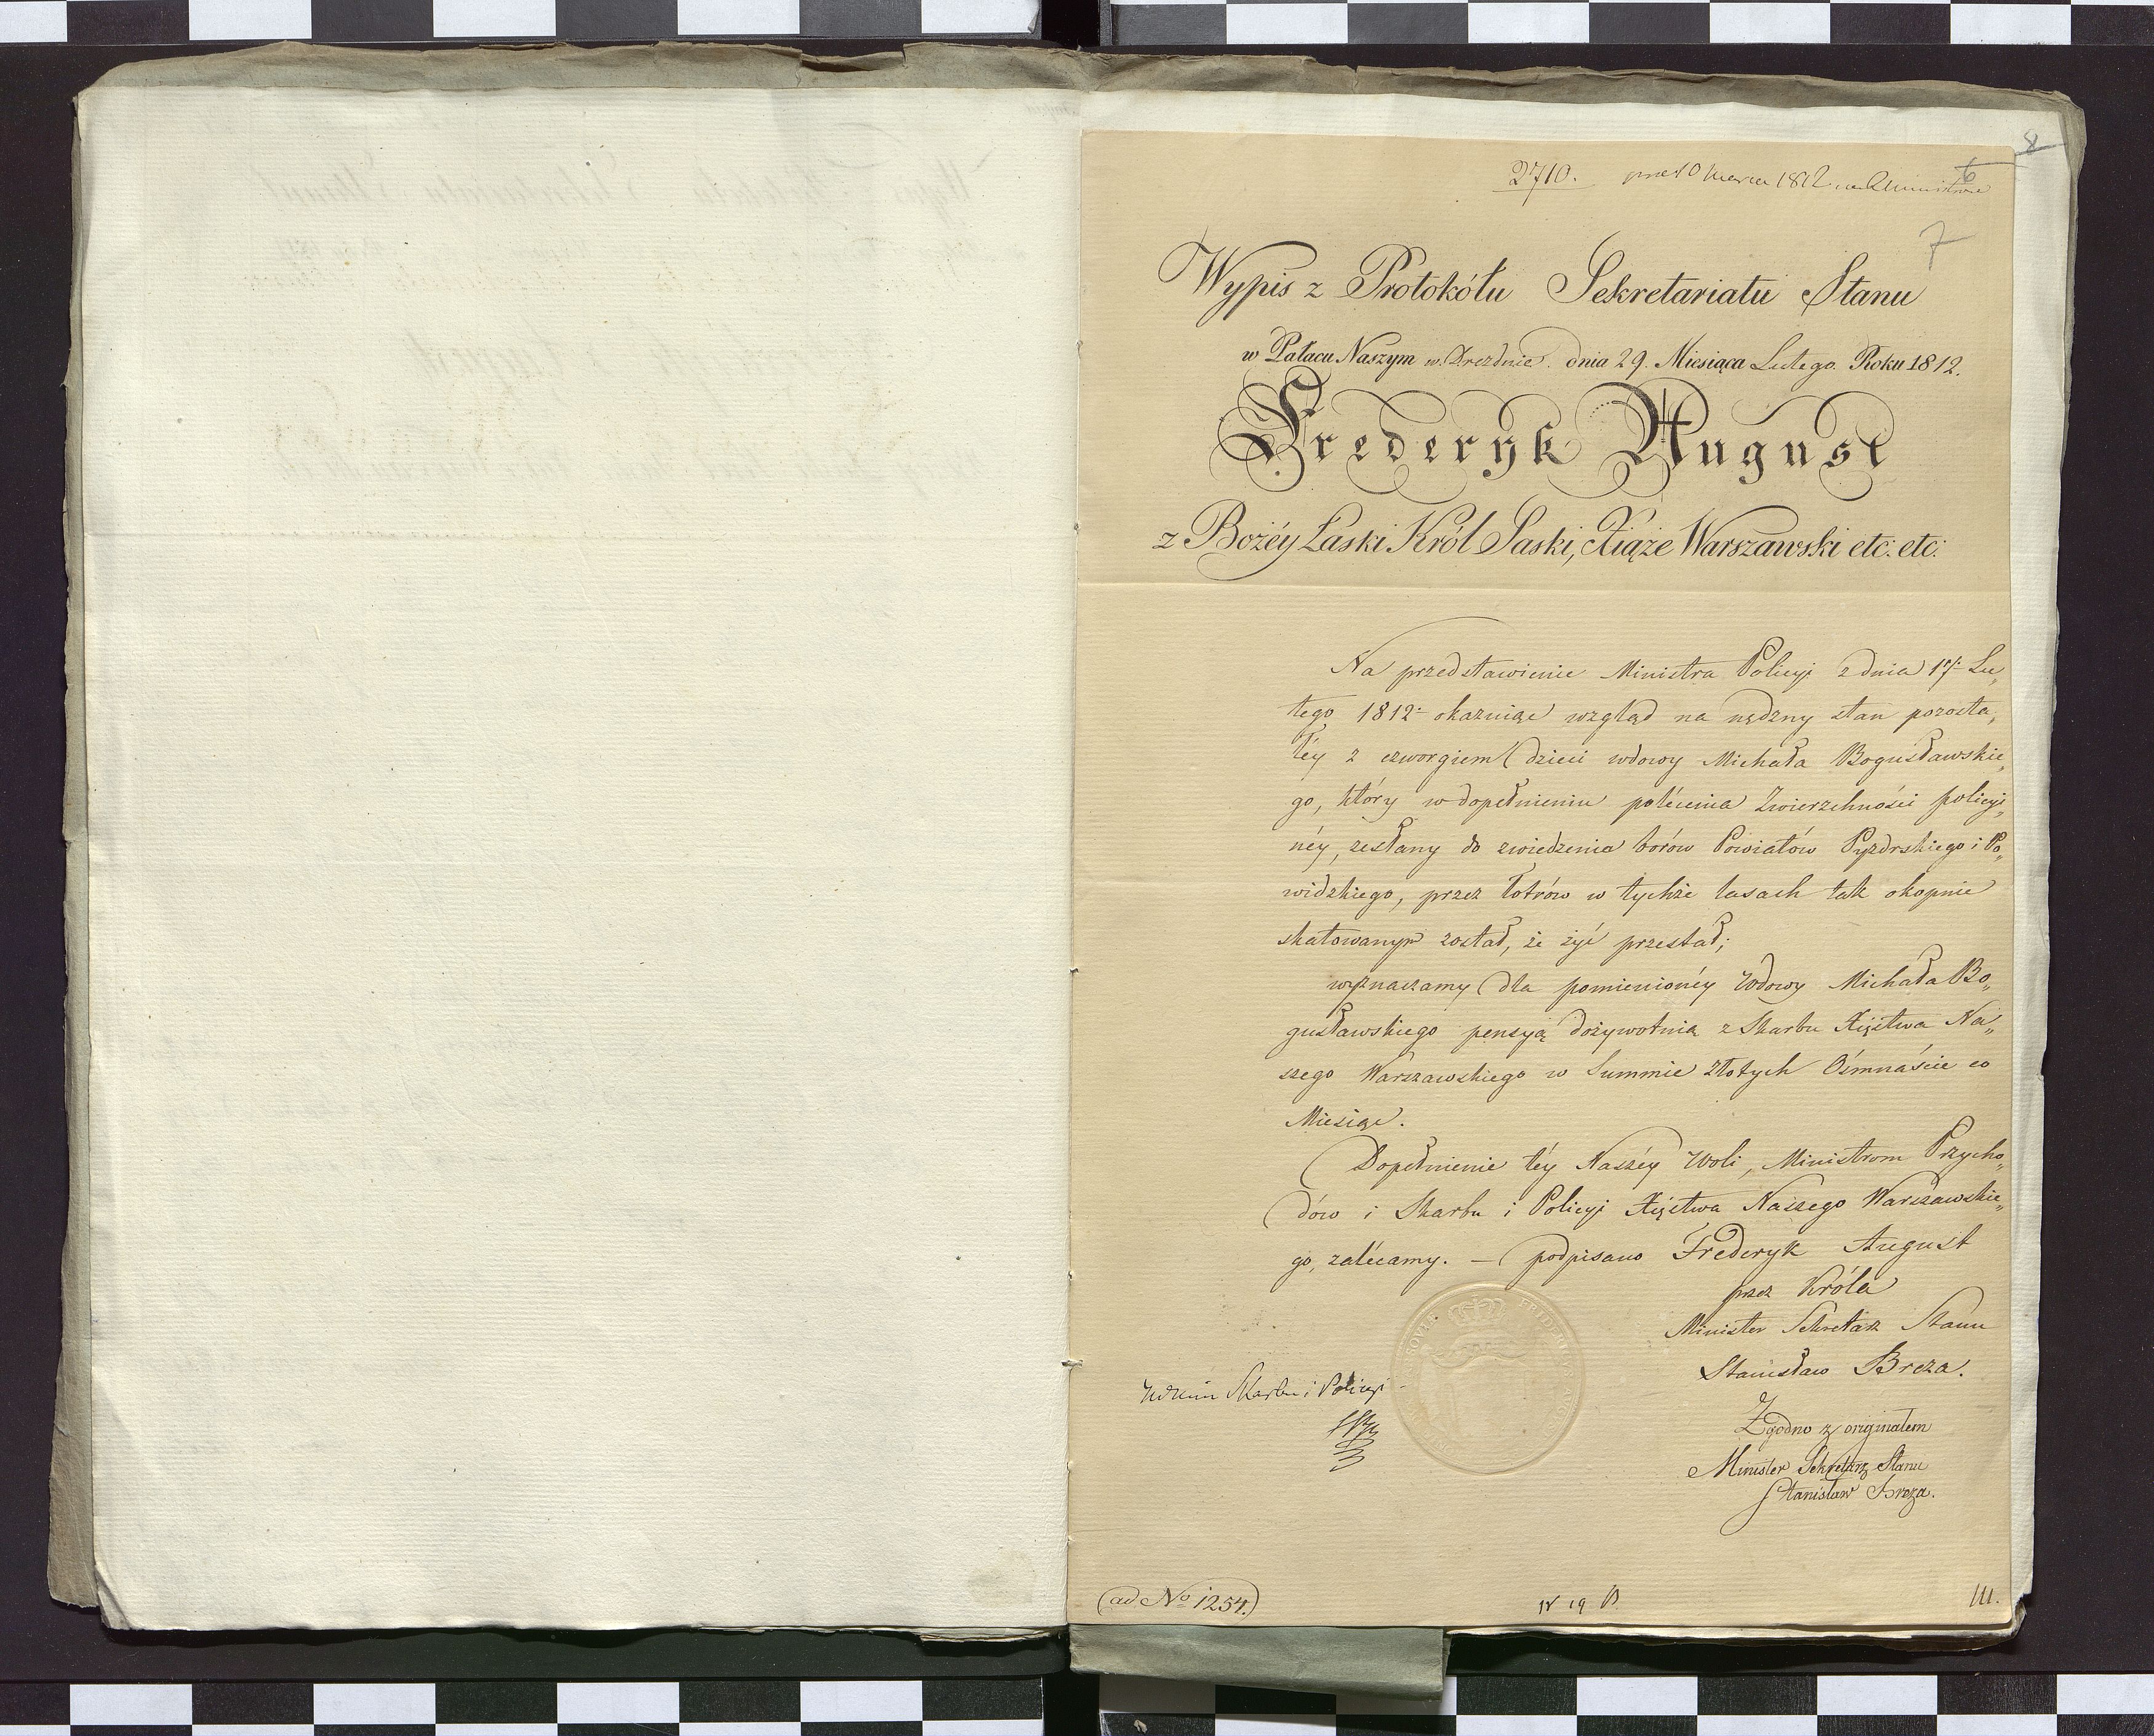 8
2710. 10 Marca 1812.
6
7
Wypis z Protokółu Sekretariatu Stanu
w Pałacu Naszym w Dreznie. dnia 29. Miesiąca Lutego. Roku 1812.
Frederyk August
z Bożéy Łaski Król Saski, Xiąże Warszawski etc: etc:
Na przedstawienie Ministra Policyi z dnia Lu„
tego 1812 okazuiąc wzgląd na nędzny stan pozosta„
łéy z czworgiem dzieci wdowy Michała Bogusławskie„
go, który w dopełnieniu polécenia Zwierzchności policyi„
néy, zesłany do zwiedzenia borów Powiatów Pyzdrskiego i Po„
widzkiego, przez łotrów w tychże lasach tak okopnie
skatowanym został, że żyć przestał;
wyznaczamy dla pomienionéy Wdowy Michała Bo„
gusławskiego pensyą dożywotnią z Skarbu Xięstwa Na„
szego Warszawskiego w Summie Złotych Ośmnaście co
Miesiąc.
Dopełnienie téy Naszéy Woli, Ministrom Przycho„
dów i Skarbu i Policyi Xięstwa Naszego Warszawskie„
go, zalécamy. — podpisano Frederyk August
przez Króla
Minister Sekretarz Stanu
Stanisław Breza.
Skarbu i Policyi
Zgodno z oryginałem
Minister Sekretarz Stanu
Stanisław Breza.
(ad No 1254.)
19
III.